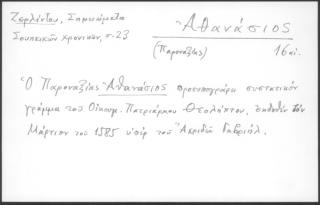 Ζερλέντου, Σημειώματα
Σουπιακῶν χρονικῶν, σ. 23
Ἀθανάσιος
(Παροναξίας)
16 αἰ.
Ὁ Παροναξίας Ἀθανάσιος προσυπογράφει συστατικὸν
γράμμα τοῦ Οἰκουμ. Πατριάρχου Θεολήπτου, ἐκδοθὲν τὸν
Μάρτιον τοῦ 1585 ὑπὲρ τοῦ Ἀχριδῶν Γαβριήλ.